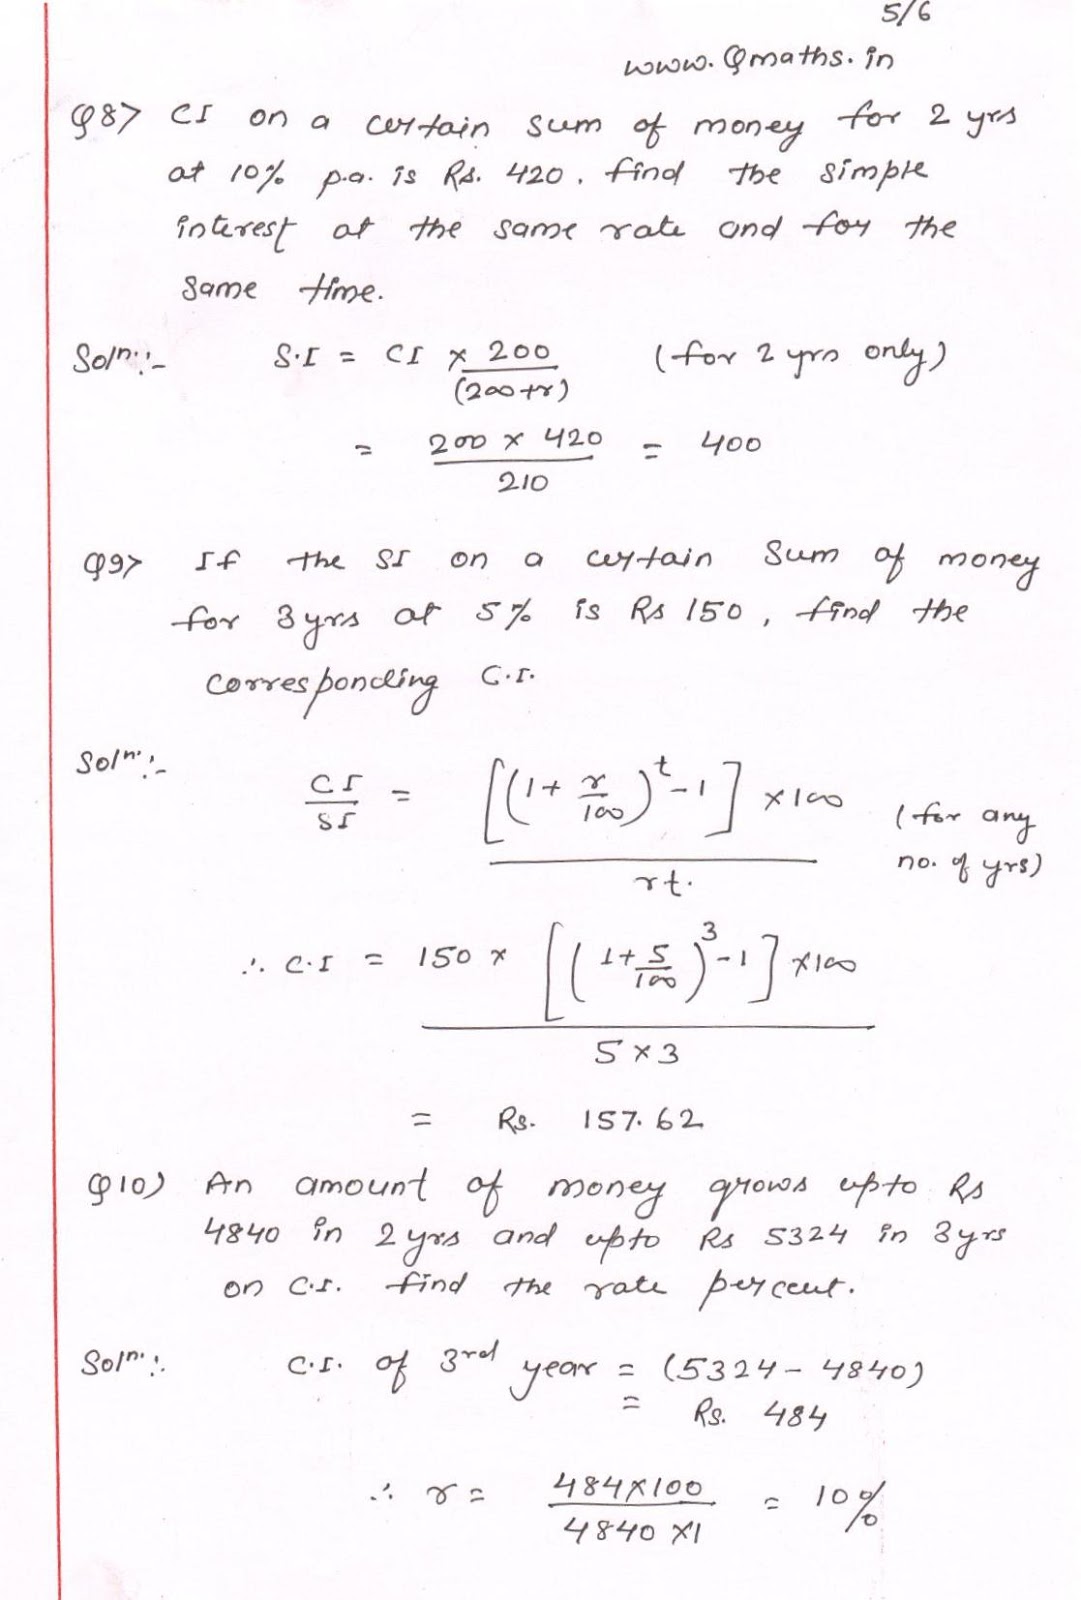 5/6
www.Qmaths.in
Q8> CI on a certain sum of money for 2 yrs
at 10% p.a. is Rs. 420. find the simple
interest at the same rate and for the
same time.
Soln:- S.I = CI × 200 (for 2 yrs only)
(200+r)
= 200 × 420 = 400
210
Q9> If the SI on a certain sum of money
for 3yrs at 5% is Rs 150, find the
corresponding C.I.
Soln:- CI/SI = [(1 + r/100)^t - 1] × 100 (for any
no. of yrs)
rt.
∴ C.I = 150 × [(1+5/100)^3 - 1] × 100
5 × 3
= Rs. 157.62
Q10) An amount of money grows upto Rs
4840 in 2 yrs and upto Rs 5324 in 3yrs
on C.I. find the rate percent.
Soln: C.I. of 3rd year = (5324 - 4840)
= Rs. 484
∴ r = 484×100 = 10%
4840 ×1